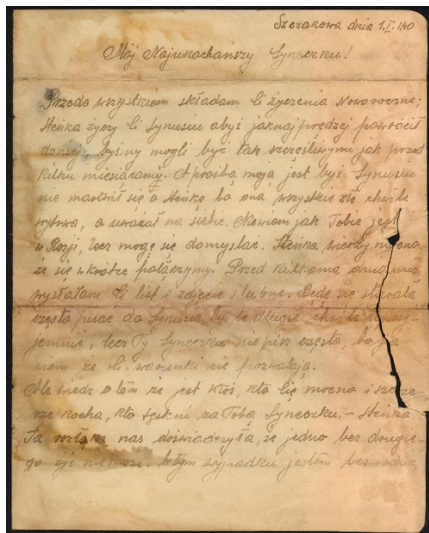 Szczakowa dnia 1.I.40
Mój Najukochańszy Syneczku!
Przede wszystkiem składam Ci życzenia Noworoczne;
Heńka życzy Ci Synusiu abyś jaknajprędzej powrócił
do niej, byśmy mogli być tak szczęśliwymi jak przed
kilku miesiącami. A prośba moja jest byś Synusiu
nie martwił się o Heńkę, bo ona wszystkie złe chwile
wytrwa, a uważał na siebie. Niewiem jak Tobie jest
w Rosji, lecz mogę się domyślać. Heńka wierzy mocno
że się wkrótce połączymy. Przed kilkoma dniami
wysłałam Ci list i zdjęcie ślubne. Będę się starała
często pisać do Synusia, by te długie chwile
lecz Ty Syneczku nie pisz często, bo ja
wiem że Ci warunki nie pozwalają.
Ale wiedz o tem że jest ktoś, kto Cię mocno i szcze-
rze kocha, kto tęskni za Tobą Syneczku, – Heńka.
Ta rozłąka nas doświadczyła, że jedno bez drugie-
go żyć nie może. wypadku jestem bez